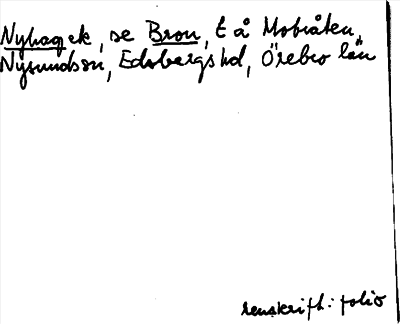 Nyhagek, se Bron, t å Mobråten,
Nysundsn, Edsbergs hd, Örebro län
renskrift: folio